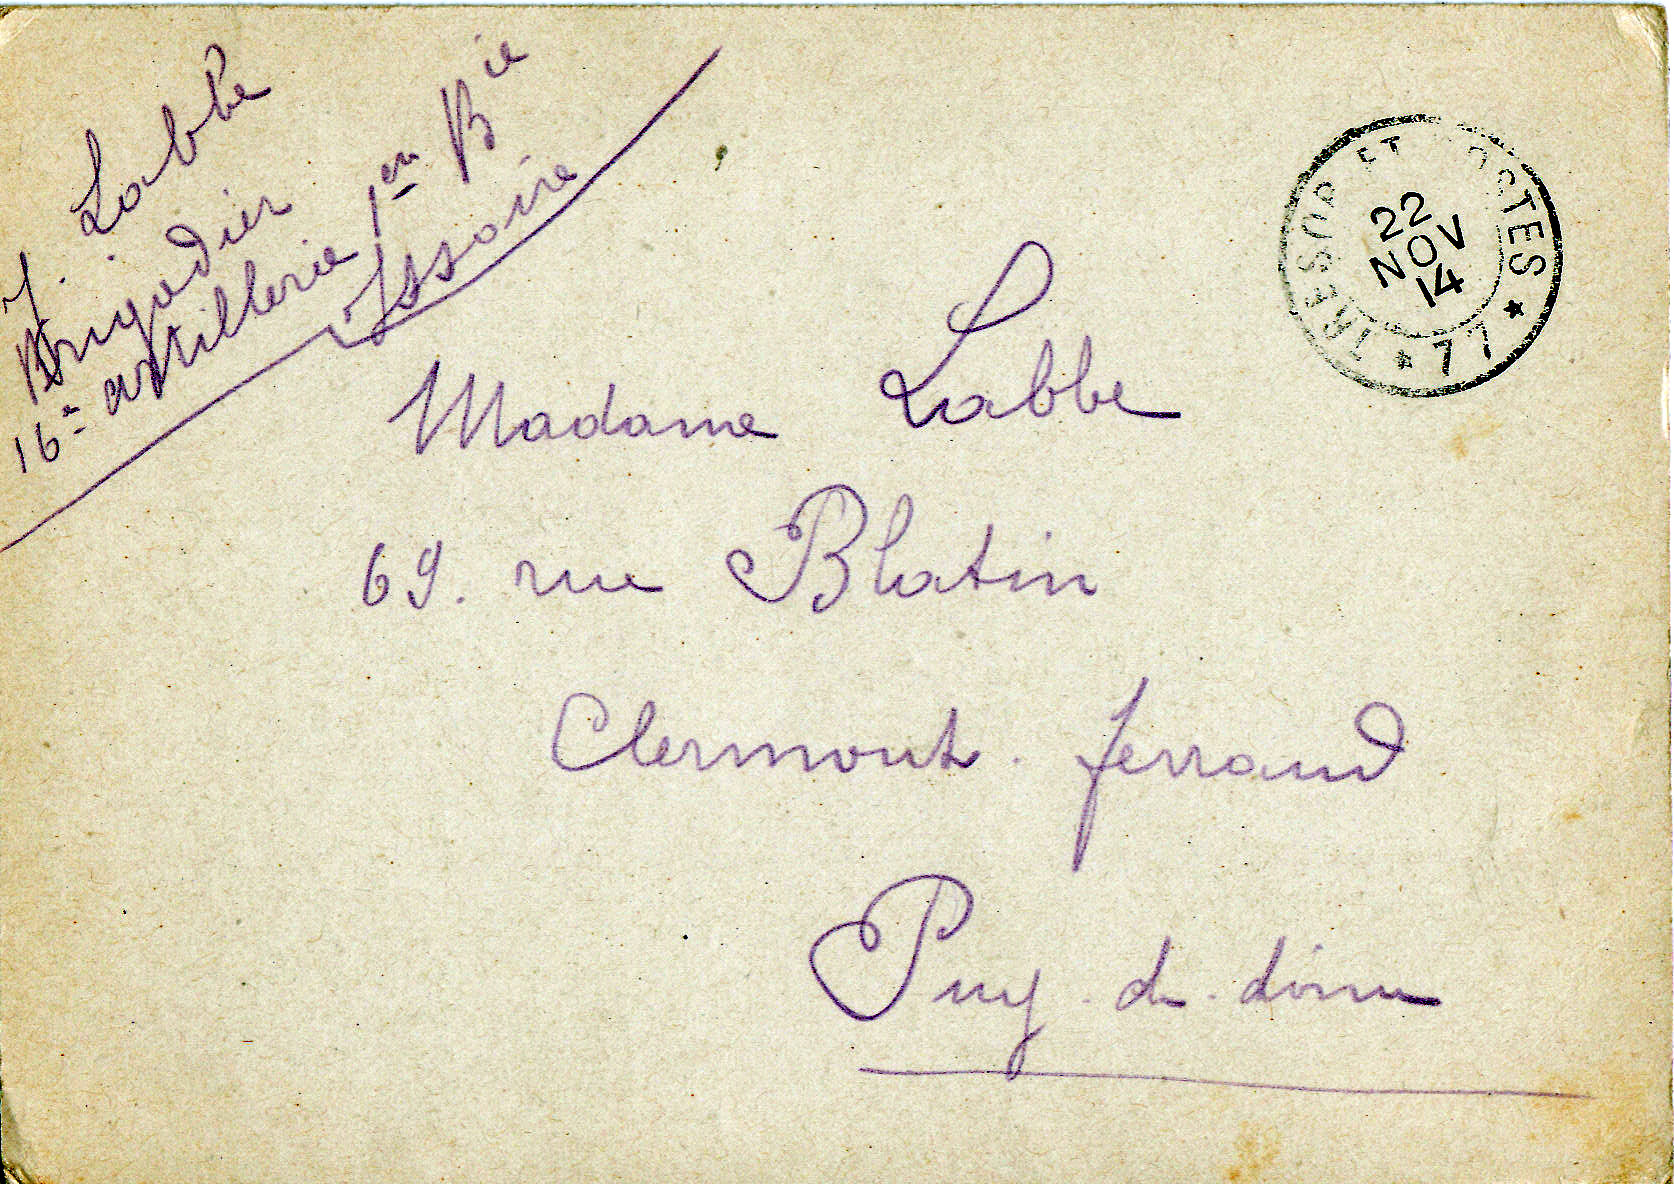 J. Labbe
Brigadier
16e artillerie 1ere Bie
Issoire
TRESOR ET POSTES
22
NOV
14
* 77 *
Madame Labbe
69. rue Blatin
Clermont. ferrand
Puy. de. dôme